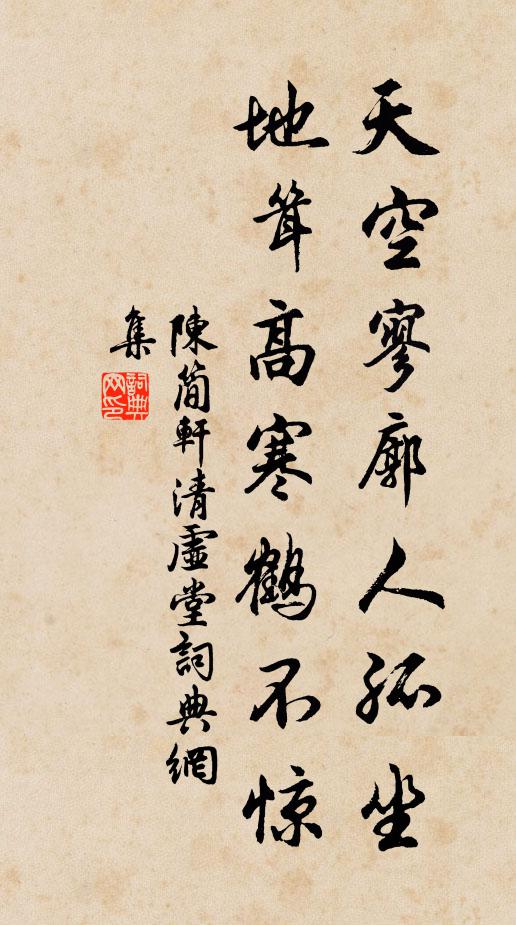 天空寥廓人孤坐
地耸高寒鹤不惊
陳簡軒清虛堂詞典網
集
詞典
网印